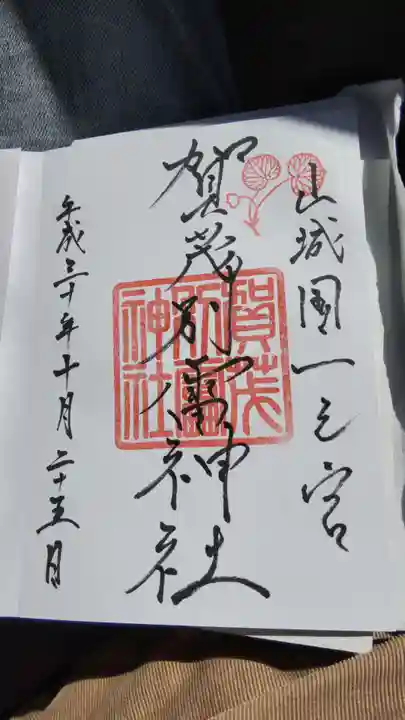 山城國一之宮
賀茂別雷神社
賀茂別雷神社
平成三十年十月二十五日